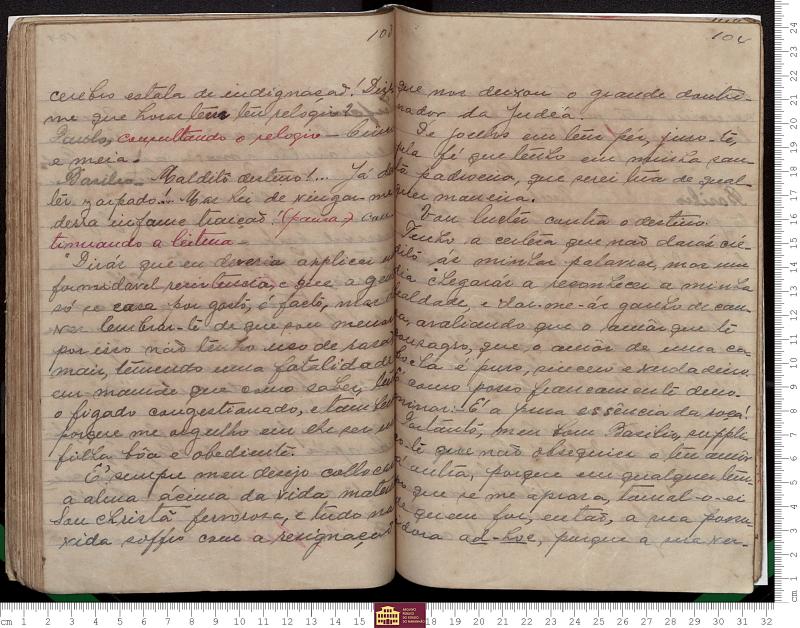 103
cerebro estala de indignação! Dize-
me que horas tem teu relogio?
Paulo, consultando o relogio –
e meia.
Basilio – Maldito destino!... Já de
ter zarpado!... Mas hei de vingar-me
dessa infame traição! (pausa) con
tinuando a leitura –
"Dirás que eu deveria applicar
formidavel resistencia, e que a gen
só se casa por gosto, é facto, mas
lembrar-te de que sou menor
por isso não tenho uso de rasão
mais, temendo uma fatalidade
em mamãe que como sabes, tem
o figado congestionado, e tambem
porque me orgulho em ser
filha bôa e obediente.
É sempre meu desejo collocar
a alma acima da vida mate
Sou christã fervorosa, e tudo na
vida soffro com a resignação
104
que nos deixou o grande doutri-
nador da Judéa.
De joelho em teus pés, juro-te,
pela fé que tenho em minha san-
ta padroeira, que serei tua de qual-
quer maneira.
Vou luctar contra o destino.
Tenho a certeza que não darás cré-
dito ás minhas palavras, mas um
dia chegarás a reconhecer a minha
lealdade, e dar-me-ás ganho de cau-
sa, avaliando que o amôr que te
consagro, que o amôr de uma ca-
bocla é puro, sincero e verdadeiro.
É como posso francamente deno-
minar: É a pura essência da roça!
Portanto, meu bom Basilio, suppli-
co-te que não obsequies o teu amôr
a outra, porque em qualquer tem-
po que se me aprosa, tomal-o-ei
de quem for, então, a sua possui-
dora ad-hoc, porque a sua ver-
cm 1 2 3 4 5 6 7 8 9 10 11 12 13 14 15 16
ARQUIVO PÚBLICO DO ESTADO DO MARANHÃO
18 19 20 21 22 23 24 25 26 27 28 29 30 31 32
cm 1 2 3 4 5 6 7 8 9 10 11 12 13 14 15 16 17 18 19 20 21 22 23 24